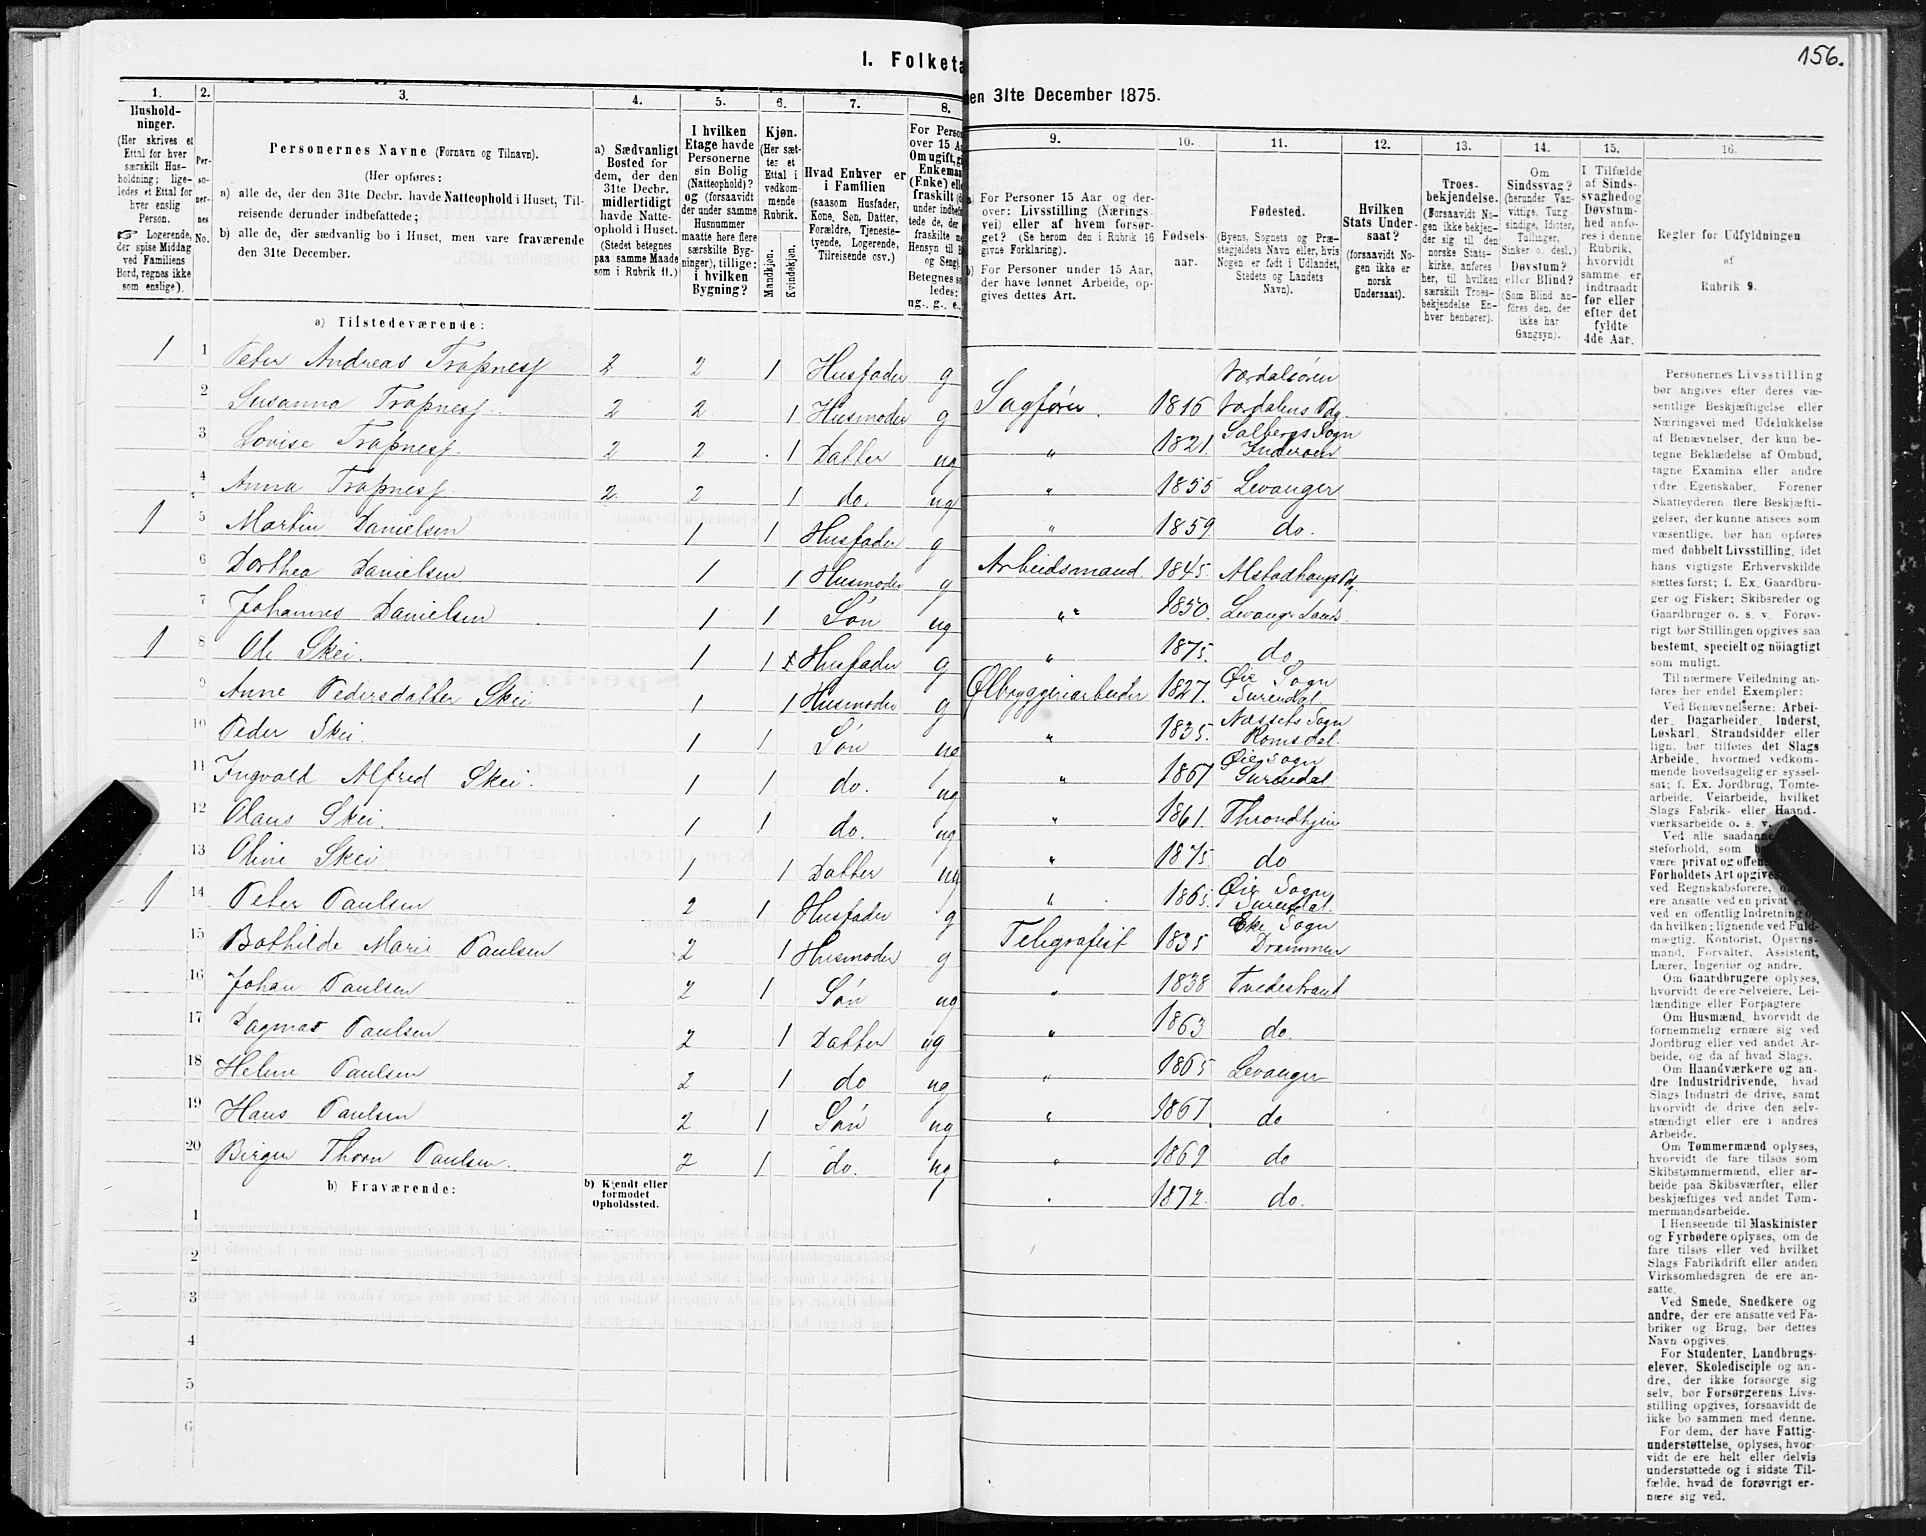 156.
I. Folketa
en 31te December 1875.
1. 2. 3. 4. 5. 6. 7. 8.
9. 10. 11. 12. 13. 14. 15. 16.
Hushold-
ninger.
(Her skrives et
Ettal for hver
særskilt Hus-
holdning; lige-
ledes et Ettal for
hver enslig
Person.
☞ Logerende,
der spise Middag
ved Familiens
Bord, regnes ikke
som enslige).
Per-
so-
ner-
nes
No.
Personernes Navne (Fornavn og Tilnavn).
(Her opføres:
a) alle de, der den 31te Decbr. havde Natteophold i Huset, Til-
reisende derunder indbefattede;
b) alle de, der sædvanlig bo i Huset, men vare fraværende
den 31te December.
a) Sædvanligt
Bosted for
dem, der den
31te Decbr.
midlertidigt
havde Natte-
ophold i Huset.
(Stedet betegnes
paa samme Maade
som i Rubrik 11.)
I hvilken
Etage havde
Personerne
sin Bolig
(Natteophold)?
og (forsaavidt
der under samme
Husnummer
maatte høre flere
særskilte Byg-
ninger), tillige:
i hvilken
Bygning?
Kjøn.
(Her sæt-
tes et
Ettal i
vedkom-
mende
Rubrik.
Mandkjøn.
Kvindekjøn.
Hvad Enhver er
i Familien
(saasom Husfader,
Kone, Søn, Datter,
Forældre, Tjeneste-
tyende, Logerende,
Tilreisende osv.)
For Perso
over 15 A
Om ugift, g
Enkema
(Enke) ell
fraskilt (d
under indb
tede de, de
fraskilte m
Hensyn til B
og Seng).
Betegnes s
ledes:
ug., g., e.,
a) For Personer 15 Aar og der-
over: Livsstilling (Nærings-
vei) eller af hvem forsør-
get? (Se herom den i Rubrik 16
givne Forklaring).
b) For Personer under 15 Aar,
der have lønnet Arbeide, op-
gives dettes Art.
Fødsels-
aar.
Fødested.
(Byens, Sognets og Præ-
stegjeldets Navn eller, hvis
Nogen er født i Udlandet,
Stedets og Landets
Navn).
Hvilken
Stats Under-
saat?
(forsaavidt No-
gen ikke er
norsk
Undersaat).
Troes-
bekjendelse.
(Forsaavidt No-
gen ikke bekjen-
der sig til den
norske Stats-
kirke, anføres
her, til hvilken
særskilt Troes-
bekjendelse En-
hver henhører).
Om
Sindssvag?
(herunder Van-
vittige, Tung-
sindige, Idioter,
Tullinger,
Sinker o. desl.)
Døvstum?
eller Blind?
(Som Blind an-
føres den, der
ikke har
Gangsyn).
I Tilfælde
af Sinds-
svaghed og
Døvstum-
hed anfø-
res i denne
Rubrik,
hvorvidt
samme er
indtraadt
før eller
efter det
fyldte
4de Aar.
Regler for Udfyldningen
af
Rubrik 9.
a) Tilstedeværende:
1 1 Peter Andreas Trapnesj 2 2 1 Husfader g Sagfører. 1816 Værdalsøren Værdalens Pdg.
2 Susanna Trapnesj 2 2 1 Husmoder g " 1821. Salbergs Sogn Inderøen
3 Lovise Trapnesj. 2 2 1 Datter ug " 1855 Levanger
4 Anna Trapnesj. 2 2 1 do. ug " 1859 do.
1 5 Martin Danielsen 1 1 Husfader g Arbeidsmand. 1845. Alstadhaugs Pdg
6 Dorthea Danielsen 1 1 Husmoder g " 1850.
7 Johannes Danielsen 1 1 Søn ug " 1875. do
1 8 Ole Skei. 1 1 Husfader g Ølbryggeriarbeider 1827. Øie Sogn Surendal.
9 Anne Pedersdatter Skei 1 1 Husmoder g " 1835. Næssets Sogn Romsdal.
10 Peder Skei. 1 1 Søn ug " 1867 Øie Sogn Surendal
11 Ingvald Alfred Skei. 1 1 do. ug " 1861. Throndhjem
12 Olaus Skei. 1 1 do. ug " 1875. do
13 Oline Skei 1 1 Datter ug " 1865. Øie Sogn Surendal.
1 14 Peter Paulsen 2 1 Husfader g Telegrafist 1835 Eker Sogn Drammen
15 Bothilde Marie Paulsen 2 1 Husmoder g " 1838 Tvedestrand
16 Johan Paulsen 2 1 Søn ug " 1863 do.
17 Dagmar Paulsen 2 1 Datter ug " 1865 Levanger
18 Helene Paulsen 2 1 do ug " 1867. do
19 Hans Paulsen 2 1 Søn ug " 1869 do
20 Birger Thorn Paulsen. 2 1 do. ug . 1872. do.
b) Fraværende:
b) Kjendt eller
formodet
Opholdssted.
1
2
3
4
5
6
Personernes Livsstilling
bør angives efter deres væ-
sentlige Beskjæftigelse eller
Næringsvei med Udelukkelse
af Benævnelser, der kun be-
tegne Beklædelse af Ombud,
tagne Examina eller andre
ydre Egenskaber. Forener
Skatteyderen flere Beskjæfti-
gelser, der kunne ansees som
væsentlige, bør han opføres
med dobbelt Livsstilling, idet
hans vigtigste Erhvervskilde
sættes først; f. Ex. Gaardbru-
ger og Fisker; Skibsreder og
Gaardbruger o. s. v. Forøv-
rigt bør Stillingen opgives saa
bestemt, specielt og nöiagtigt
som muligt.
Til nærmere Veiledning an-
føres her endel Exempler:
Ved Benævnelserne: Arbei-
der, Dagarbeider, Inderst,
Løskarl, Strandsidder eller
lign. bør tilføies det Slags
Arbeide, hvormed vedkom-
mende hovedsagelig er syssel-
sat; f. Ex. Jordbrug, Tomte-
arbeide, Veiarbeide, hvilket
Slags Fabrik- eller Haand-
værksarbeide o. s. v.
Ved alle saadanne
steforhold, som
være privat og offen
Forholdets Art opgive
ved Regnskabsførere,
ere ansatte ved en privat
ved en offentlig Indretning
da hvilken; lignende ved Fuld-
mægtig, Kontorist, Opsyns-
mand, Forvalter, Assistent,
Lærer, Ingeniør og andre.
Om Gaardbrugere oplyses,
hvorvidt de ere Selveiere, Lei-
lændinge eller Forpagtere
Om Husmænd, hvorvidt de
fornemmelig ernære sig ved
Jordbrug eller ved andet Ar-
beide, og da af hvad Slags.
Om Haandværkere og an-
dre Industridrivende, hvad
Slags Industri de drive, samt
hvorvidt de drive den selv-
stændigt eller ere i andres
Arbeide.
Om Tømmermænd oplyses,
hvorvidt de fare tilsøs som
Skibstømmermænd, eller ar-
beide paa Skibsværfter, eller
beskjæftiges ved andet Tøm-
mermandsarbeide.
I Henseende til Maskinister
og Fyrbødere oplyses, om de
fare tilsøs eller ved hvilket
Slags Fabrikdrift eller anden
Virksomhedsgren de ere an-
satte.
Ved Smede, Snedkere og
andre, der ere ansatte ved Fa-
briker og Brug, bør dettes
Navn opgives.
For Studenter, Landbrugs-
elever, Skoledisciple og an-
dre, der ikke forsørge sig
selv, bør Forsørgerens Livs-
stilling opgives, forsaavidt de
ikke bo sammen med denne.
For dem, der have Fattig-
understøttelse, oplyses, hvor-
vidt de ere helt eller delvis
understøttede og i sidste Til-
fælde, hvad de forøvrigt er-
nære sig ved.